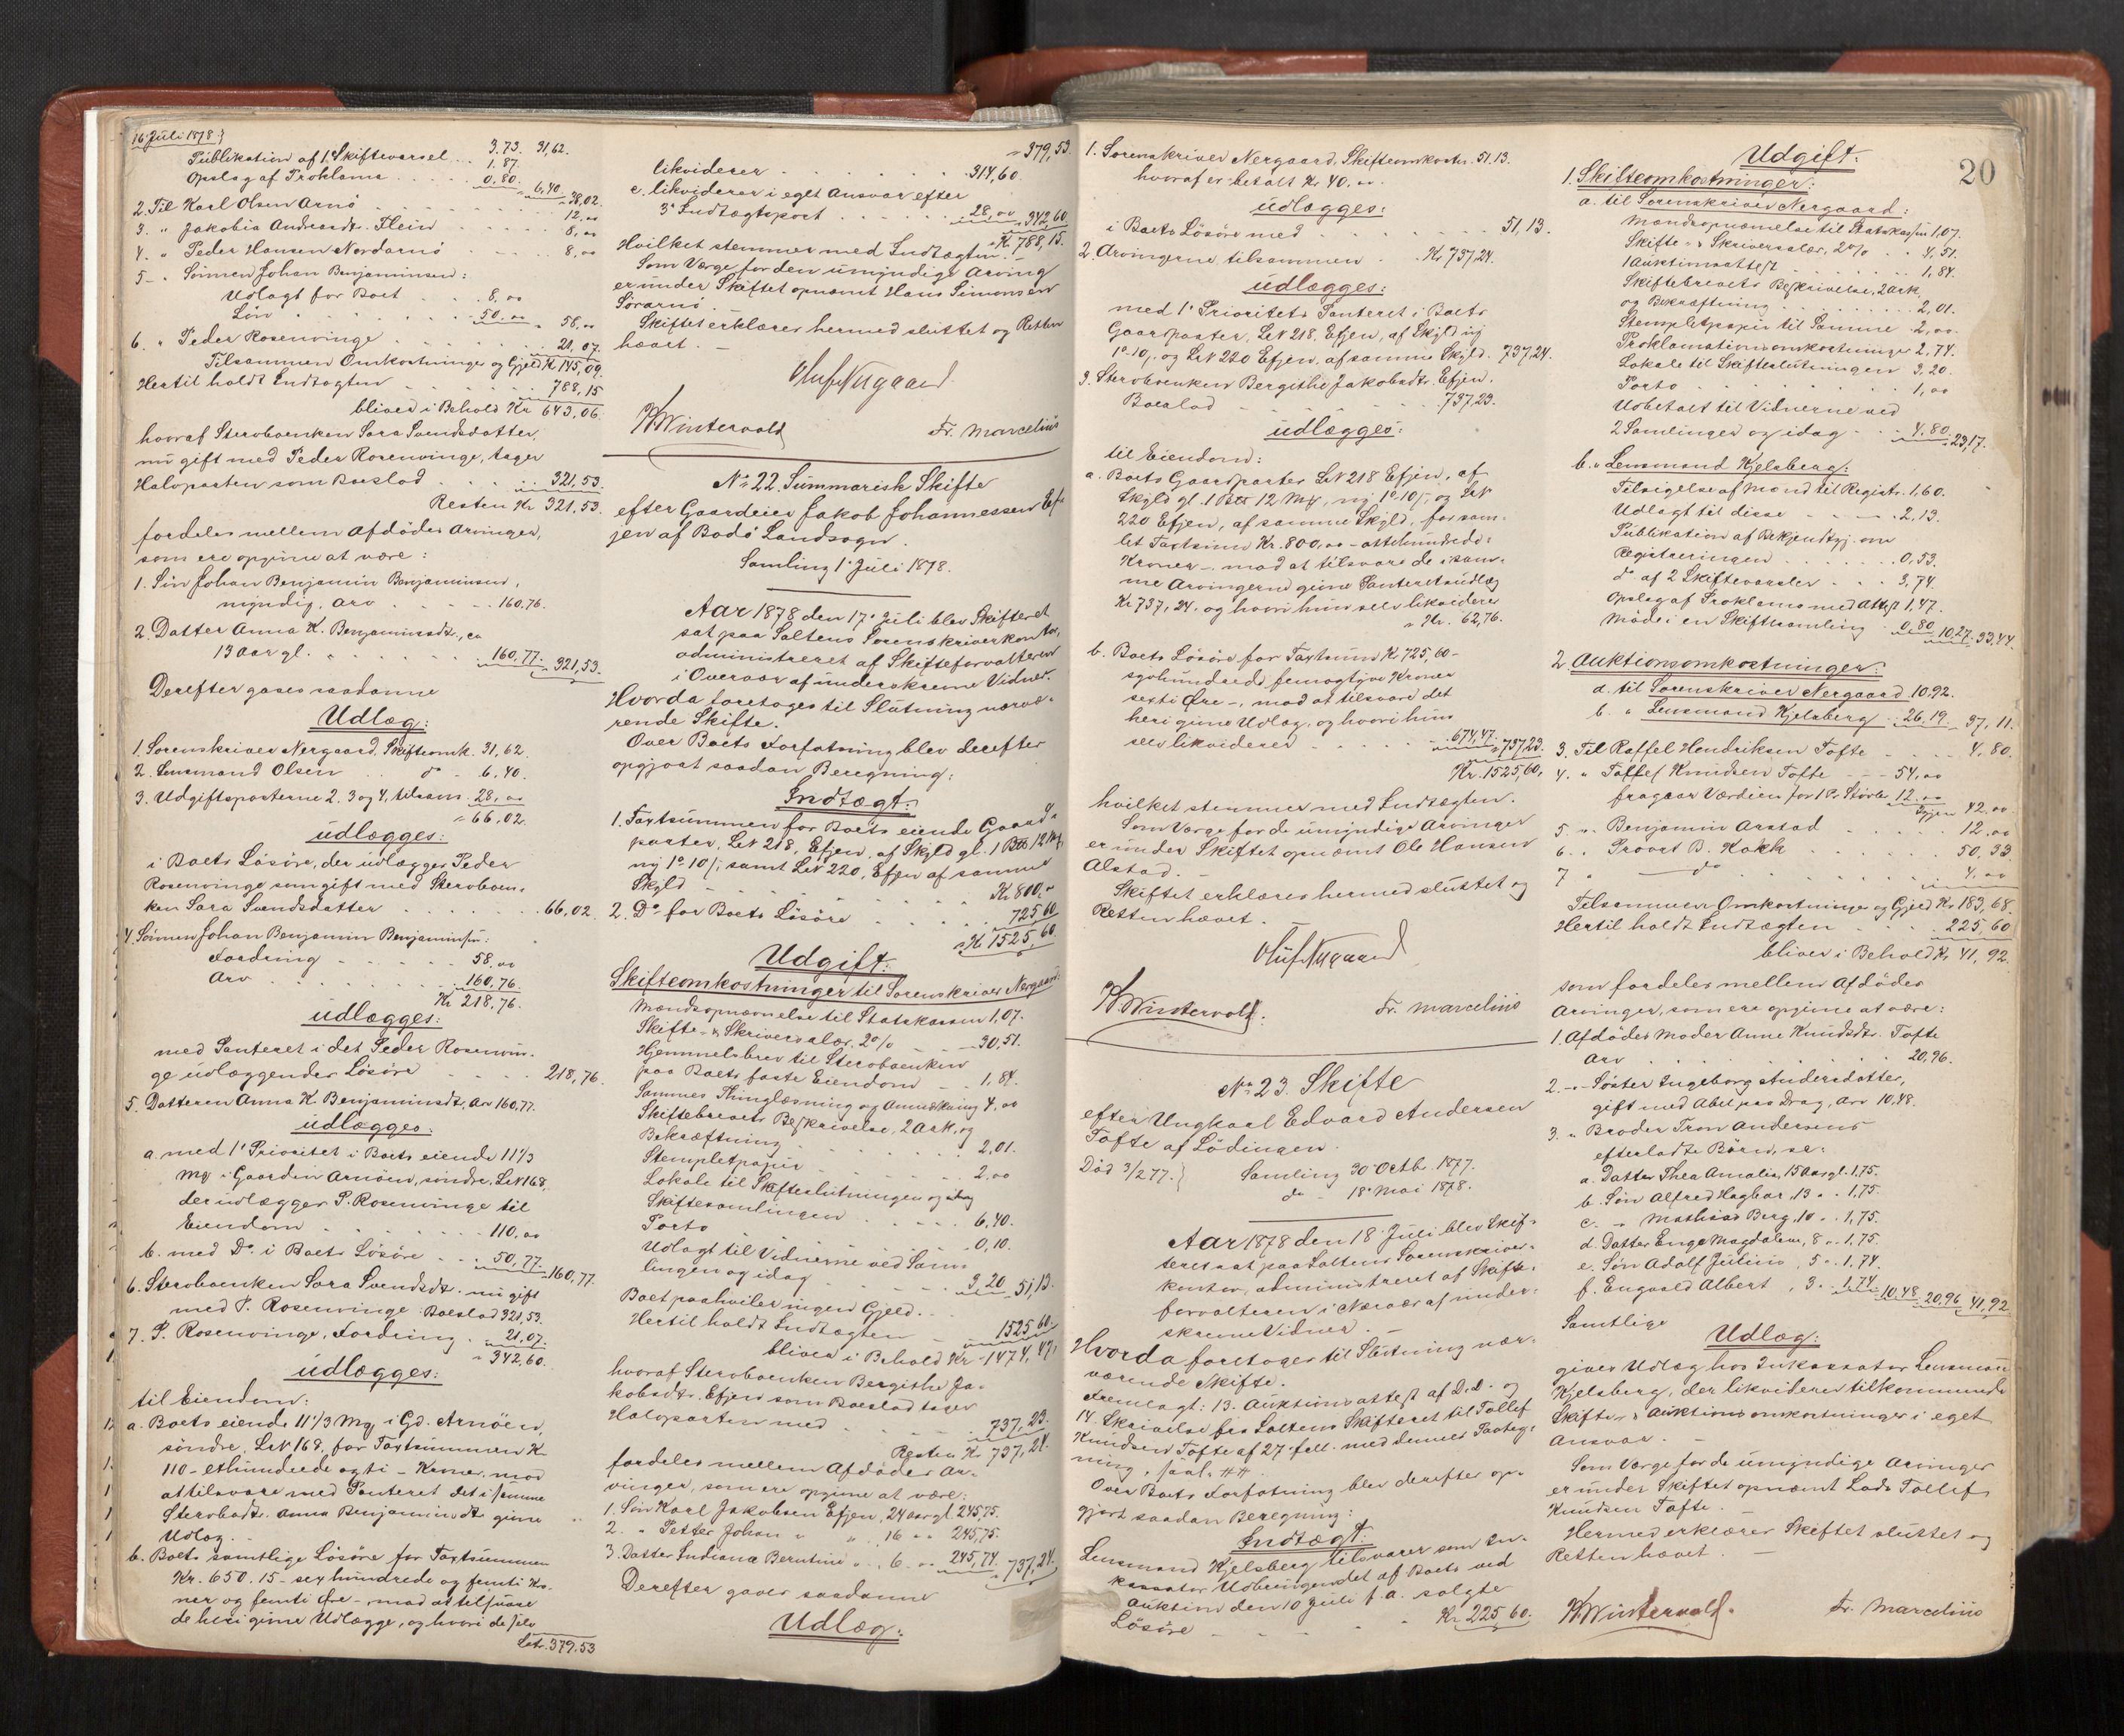 16 Juli 1878.
Publikation af 1 Skiftevarsel . . 3.73. 31,62.
Opslag af Proklama . . . . 1.87.
0,80. 6,40. 38,02.
2. Til Karl Olsen Arnö . . . 12,00
3. " Jakobia Andreasdtr. Flein . . 8,00
4. " Peder Hansen Nordarnö . . . 8,00
5. " Sönnen Johan Benjaminsen:
Udlagt for Boet . . . 8,00
Lön . . . 50.00 58,00
6. " Peder Rosenvinge . . . 21,07.
Tilsammen Omkostninger og Gjeld Kr 145,09.
Hertil holdt Indtægten . . . 788,15
bliver i Behold Kr 643,06.
hvoraf Sterboenken Sara Svendsdatter,
nu gift med Peder Rosenvinge, tager
Halvparten som Boeslod . . . 321,53.
Resten Kr 321,53.
fordeles mellem Afdödes Arvinger,
som ere opgivne at være:
1. Sön Johan Benjamin Benjaminsen,
myndig. Arv . . . 160,76.
2. Datter Anna K. Benjaminsdtr, ca
13 Aar gl. . . . 160,77. 321,53.
Derefter gaves saadanne
Udlæg:
1. Sorenskriver Nergaard. Skifteomk. 31,62.
2. Lensmand Olsen . . do - 6,40.
3. Udgiftsposterne 2. 3 og 4, tilsam. 28,00
66,02.
udlægges:
i Boets Lösöre, der udlægges Peder
Rosenvinge som gift med Sterboen-
ken Sara Svendsdatter . . . 66,02.
4. Sönnen Johan Benjamin Benjaminsen:
Fordring . . . 58,00
Arv . . . 160,76.
Kr 218,76.
udlægges:
med Panteret i det Peder Rosenvin-
ge udlæggendes Lösöre . . . 218,76.
5. Datteren Anna K. Benjaminsdt, Arv 160,77.
udlægges:
a. med 1e Prioritet i Boets eiende 11 1/3
Mg i Gaarden Arnöen, söndre, LN 168,
der udlægges P. Rosenvinge til
Eiendom . . . 110,00
b. med Do. i Boets Lösöre . . 50,77. 160,77.
6. Sterboenken Sara Svendsdt. nu gift
med P. Rosenvinge. Boeslod 321,53.
7. P. Rosenvinge, Fordring . . 21,07.
342,60.
udlægges:
til Eiendom:
a. Boets eiende 11 1/3 Mg i Gd. Arnöen,
söndre, LN 168, for Taxtsummen Kr
110 - ethundrede og ti - Kroner, mod
at tilsvare med Panteret det i samme
Sterbodtr. Anna Benjaminsdt givne
Udlæg.
b. Boets samtlige Lösöre for Taxtsummen
Kr. 650.15 - sex hundrede og femti Kro-
ner og femti Øre - mod at tilsvare
de heri givne Udlægge, og hvori de selv
Latr. 379.53
379,53.
likviderer . . . 314,60.
c. likviderer i eget Ansvar efter
3e Indtægtspost . . . 28,00 342,60.
Kr 788,15.
Hvilket stemmer med Indtægten.
Som Værge for den umyndige Arving
er under Skiftet opnævnt Hans Simonsen
Sörarnö.
Skiftet erklæres hermed sluttet og Retten
hævet. -
Oluf Nergaard
W. Wintervold Fr. Marcelius
No 22. Summarisk Skifte
efter Gaardeier Jakob Johannessen Ef-
jen af Bodö Landsogn.
Samling 1e Juli 1878.
Aar 1878 den 17e Juli blev Skifteret
sat paa Saltens Sorenskriverkontor,
administreret af Skifteforvalteren
i Overvær af underskrevne Vidner.
Hvorda foretoges til Slutning nærvæ-
rende Skifte.
Over Boets Forfatning blev derefter
opgjort saadan Beregning:
Indtægt:
1. Taxtsummen for Boets eiende Gaard-
parter, LN 218, Efjen, af Skyld gl. 1 Bts 12 Mg,
ny 1o 10/, samt LN 220, Efjen af samme
Skyld . . . Kr 800,00
2. Do. for Boets Lösöre . . . 725 60
Kr 1525,60
Udgift:
Skifteomkostninger til Sorenskriver Nergaard:
Mandsopnævnelse til Statskassen 1,07.
Skifte- & Skriversalær. 2% . . 30,51.
Hjemmelsbrev til Sterboenken
paa Boets faste Eiendom . . 1,84.
Sammes Thinglæsning og Anmærkning 4,00
Skiftebrevets Beskrivelse, 2 Ark, og
Bekræftning . . . 2,01.
Stempletpapir . . . 2,00
Lokale til Skifteslutningen og
Skiftesamlingen . . . 6,40.
Porto . . . 0,10.
Udlagt til Vidnerne ved Sam-
lingen og idag . . . 3,20 51,13.
Boet paahviler ingen Gjeld.
Hertil holdt Indtægten . . . 1525 60.
bliver i Behold Kr 1474,47.
hvoraf Sterboenken Bergithe Ja-
kobsdtr. Efjen som Boeslod tager
Halvparten med . . . 737,23.
Resten Kr 737,24.
fordeles mellem Afdödes Ar-
vinger, som ere opgivne at være:
1. Sön Karl Jakobsen Efjen, 24 aar gl. 245,75.
2. " Petter Johan " " 16 " " 245,75.
3. Datter Indiana Berntine " . 6. " 245,74. 737,24.
Derefter gaves saadanne
Udlæg:
1. Sorenskriver Nergaard, Skifteomkostn. 51.13.
hvoraf er betalt Kr 40,00.
udlægges:
i Boets Lösöre med . . . 51,13.
2. Arvingerne tilsammen . Kr 737,24.
udlægges:
med 1e Prioritets Panteret i Boets
Gaardparter, LN 218, Efjen, af Skyld ny
1o 10/, og LN 220 Efjen, af samme Skyld. 737,24.
3. Sterboenken Bergithe Jakobsdtr. Efjen.
Boeslod . . . 737,23.
udlægges:
til Eiendom:
a. Boets Gaardparter LN 218 Efjen, af
Skyld gl. 1 Bts 12 Mg, ny 1o 10/, og LN
220 Efjen, af samme Skyld, for sam-
let Taxtsum Kr. 800,00 - ottehundrede -
Kroner -, mod at tilsvare de i sam-
me Arvingerne givne Panteretsudlæg
Kr 737,24. og hvori hun selv likviderer
Kr. 62,76.
b. Boets Lösöre for Taxtsum Kr 725,60 -
syvhundrede femogtyve Kroner
sexti Øre -, mod at tilsvare det
heri givne Udlæg, og hvori hun
selv likviderer . . . 674,47. 737,23.
Kr. 1525,60.
hvilket stemmer med Indtægten.
Som Værge for de umyndige Arvinger
er under Skiftet opnævnt Ole Hansen
Alstad.
Skiftet erklæres hermed sluttet og
Retten hævet.
Oluf Nergaard
W. Wintervold. Fr. Marcelius
No 23. Skifte
efter Ungkarl Edvard Andersen
Tofte af Lödingen.
Död 3/2 77. Samling 30e Octbr. 1877.
do - 18e Mai 1878.
Aar 1878 den 18 Juli blev Skif-
teret sat paa Saltens Sorenskriver-
kontor, administreret af Skifte-
forvalteren i Nærvær af under-
skrevne Vidner.
Hvorda foretoges til Slutning nær-
værende Skifte.
Fremlagt: 13. Auktionsattest af D.D. og
14. Skrivelse fra Saltens Skifteret til Tollef
Knudsen Tofte af 27 f.M. med dennes Paateg-
ning, saal. ##.
Over Boets Forfatning blev derefter op-
gjort saadan Beregning:
Indtægt.
Lensmand Kjelsberg tilsvarer som In-
kassator Udbringendet af Boets ved
Auktion den 10 Juli f.A. solgte
Lösöre . . . Kr. 225 60.
20
Udgift:
1. Skifteomkostninger:
a. til Sorenskriver Nergaard:
Mandsopnævnelse til Statskassen 1,07.
Skifte- & Skriversalær, 2% . . 4,51.
1 Auktionsattest . . . 1,84.
Skiftebrevets Beskrivelse, 2 Ark,
og Bekræftning . . . 2,01.
Stempletpapir til Samme . 2,00.
Proklamationsomkostninger 2,74.
Lokale til Skifteslutningen 3,20.
Porto . . . 1,00
Udbetalt til Vidnerne ved
2 Samlinger og idag . . 4,80. 23,17.
b. " Lensmand Kjelsberg:
Tilsigelse af Mænd til Registr. 1,60.
Udlagt til disse . . . 2,13.
Publikation af Bekjendtgj. om
Registreringen . . . 0,53.
do af 2 Skiftevarsler . . . 3,74.
Opslag af Proklama med Attest 1,47.
Möde i en Skiftesamling . 0,80 10,27. 33,44.
2 Auktionsomkostninger:
a. til Sorenskriver Nergaard 10.92.
b. " Lensmand Kjelsberg . . 26,19. 37,11.
3. Til Raffel Hendriksen Tofte . . . 4,80.
4. " Tollef Knudsen Tofte . . . 54,00
fragaar Værdien for 1 Pr Stövler 12,00
Igjen 42,00
5. " Benjamin Arstad . . . 12,00
6. " Provst B. Kokk . . . 50,33
7 " do . . . 4,00
Tilsammen Omkostninger og Gjeld Kr. 183,68.
Hertil holdt Indtægten . . . 225,60
bliver i Behold Kr 41,92.
som fordeles mellem Afdödes
Arvinger, som ere opgivne at være:
1. Afdödes Moder Anne Knudsdtr. Tofte
Arv . . . 20,96.
2. " Söster Ingeborg Andersdatter,
gift med Abel paa Drag, Arv 10,48.
3. " Broder Tron Andersens
efterladte Börn, se:
a. Datter Thea Amalia, 15 Aar gl. 1,75.
b. Sön Alfred Hagbar, 13 " . 1,75.
c. " Mathias Berg, 10 " . 1,75.
d. Datter Enge Magdalena, 8 " . 1,75.
e. Sön Adolf Julius, 5 " . 1,74.
f. Engvald Albert, 3 " . 1,74. 10,48. 20,96 41,92
Samtlige
Udlæg:
gives Udlæg hos Inkassator Lensmand
Kjelsberg, der likviderer tilkommende
Skifte- & Auktionsomkostninger i eget
Ansvar. -
Som Værge for de umyndige Arvinger
er under Skiftet opnævnt Lods Tollef
Knudsen Tofte.
Hermed erklæres Skiftet sluttet og
Retten hævet
W. Wintervold. Fr. Marcelius